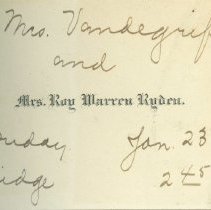 Mrs. Vandegrif
and
Mrs. Roy Warren Ryden.
day Jan. 23
idge 2 45